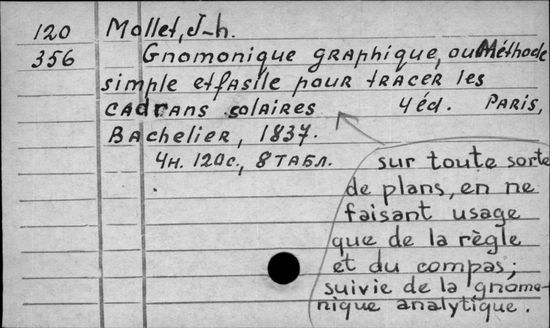 120 Mollet, J-h.
356 Gnomonique graphique, ou Méthode
simple et fasile pour tracer les
cadrans solaires 4 éd. Paris,
Bachelier, 1837.
4н. 120с., 8 табл.
sur toute sorte
de plans, en ne
faisant usage
que de la règle
et du compas;
suivie de la gnomo-
nique analytique.